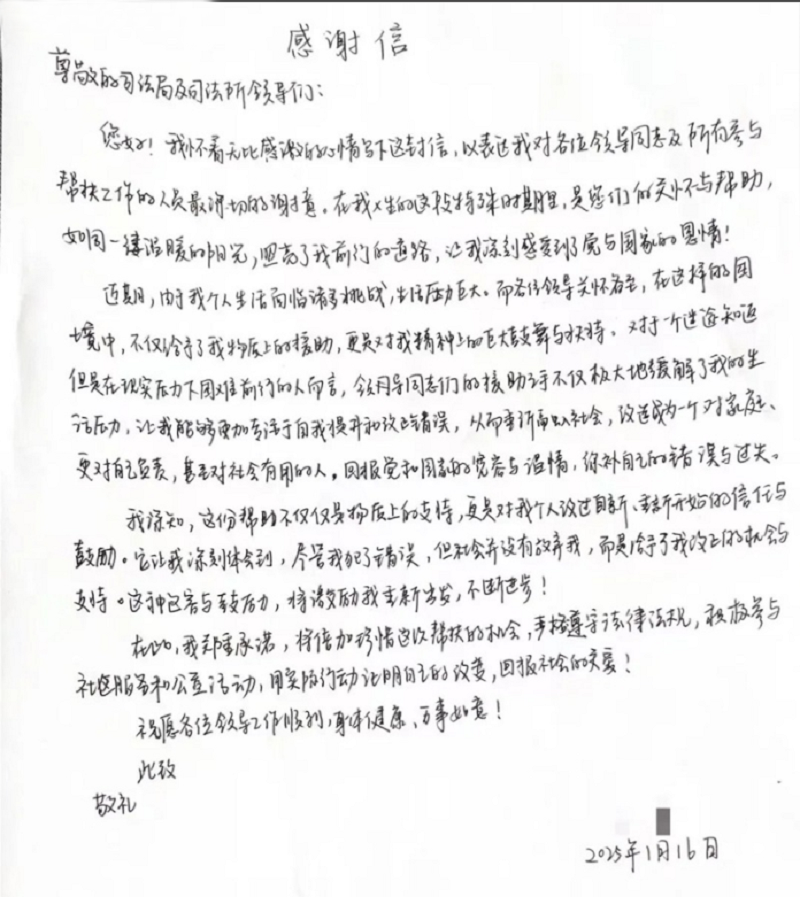 感谢信
尊敬的司法局及司法所领导们：
您好！我怀着无比感激的心情写下这封信，以表达我对各位领导同志及所有参与
帮扶工作的人员最深切的谢意。在我人生的这段特殊时期里，是您们的关怀与帮助，
如同一缕温暖的阳光，照亮了我前行的道路，让我深刻感受到了党与国家的恩情！
近期，由于我个人生活面临诸多挑战，生活压力巨大。而各位领导关怀备至，在这样的困
境中，不仅给予了我物质上的援助，更是对我精神上的巨大鼓舞与扶持。对于一个迷途知返
但是在现实压力下困难前行的人而言，领导同志们的援助之手不仅极大地缓解了我的生
活压力，让我能够更加专注于自我提升和改正错误，从而重新融入社会，改造成为一个对家庭、
更对自己负责，甚至对社会有用的人。回报党和国家的宽容与温情，弥补自己的错误与过失。
我深知，这份帮助不仅仅是物质上的支持，更是对我个人改过自新、重新开始的信任与
鼓励。它让我深刻体会到，尽管我犯了错误，但社会并没有放弃我，而是给予了我改正的机会与
支持。这种包容与鼓励，将激励我重新出发，不断进步！
在此，我郑重承诺，将倍加珍惜这次帮扶的机会，严格遵守法律法规，积极参与
社区服务和公益活动，用实际行动证明自己的改变，回报社会的关爱！
祝愿各位领导工作顺利，身体健康、万事如意！
此致
敬礼
2025年1月16日